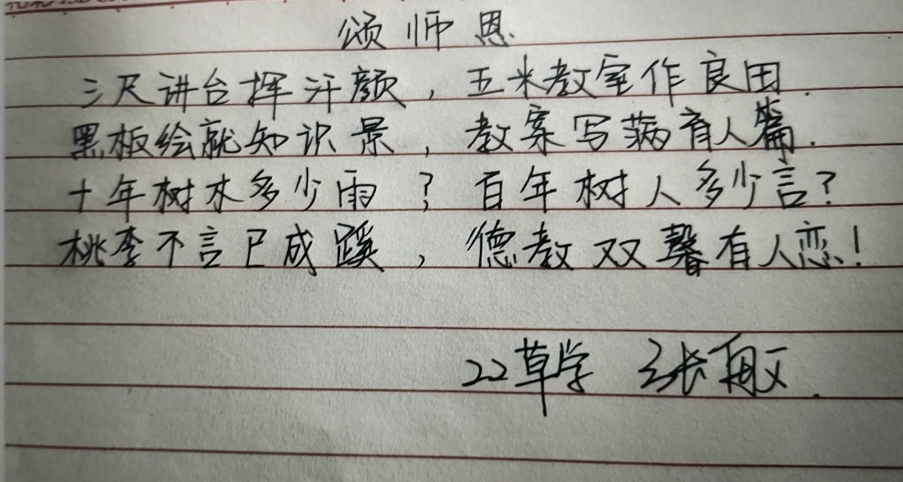 颂师恩
三尺讲台挥汗颜，五米教室作良田.
黑板绘就知识景，教案写满育人篇.
十年树木多少雨？百年树人多少言？
桃李不言已成蹊，德教双馨有人恋！
22草学 张敏.